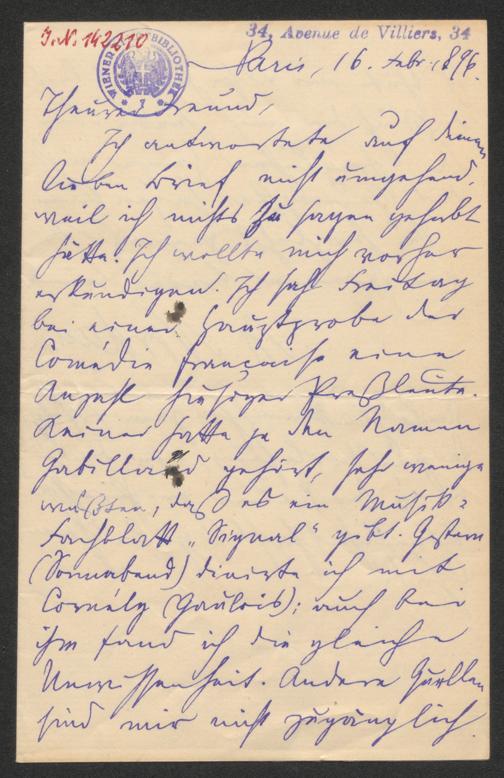 J.N. 142210
WIENER BIBLIOTHEK
34, Avenue de Villiers, 34
Paris, 16. Febr. 1896.
Theurer Freund,
Ich antwortete auf deinen
lieben Brief nicht umgehend,
weil ich nichts zu sagen gehabt
hätte. Ich wollte mich vorher
erkundigen. Ich sah Freitag
bei einer Hauptprobe der
Comédie française eine
Anzahl hiesiger Preßleute.
Keiner hatte je den Namen
Gabillard gehört, sehr wenige
wußten, daß es ein Musik-
Fachblatt „Signal" gibt. Gestern
(Sonnabend) dinirte ich mit
Cornély (Gaulois); auch bei
ihm fand ich die gleiche
Unwissenheit. Andere Quellen
sind mir nicht zugänglich.